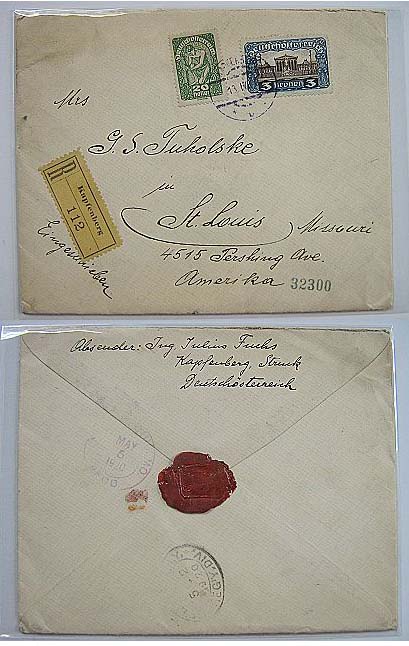 Deutschösterreich
20
Deutschösterreich
3 KRONEN 3
Mrs
G. S. Tuholske
in
St. Louis Missouri
4515 Pershing Ave.
Amerika 32300
R
Kapfenberg
112
Eingeschrieben
Absender: Ing Julius Fuchs
Kapfenberg,
Deutschösterreich
MAY
6
1920
MO.